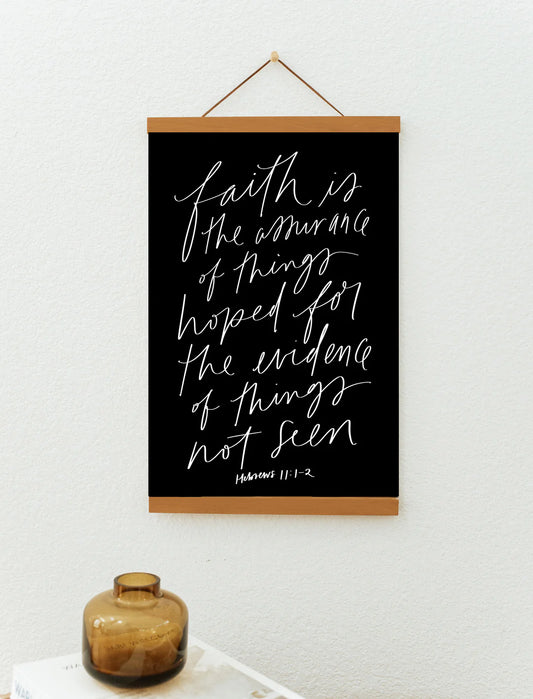 faith is
the assurance
of things
hoped for
the evidence
of things
not seen
Hebrews 11:1-2